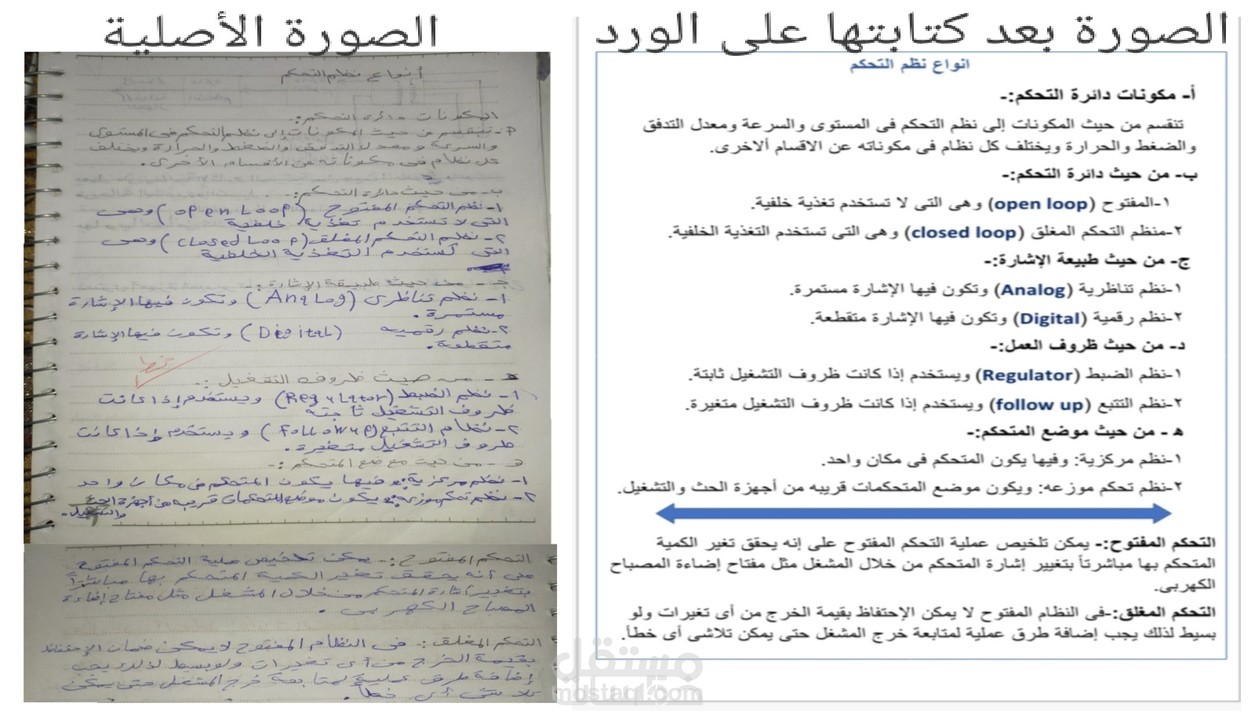 الصورة الأصلية
أنواع نظم التحكم
المكونات دائرة التحكم:-
أ- تنقسم من حيث المكونات إلى نظم التحكم فى المستوى
والسرعة ومعدل التدفق والضغط والحرارة ويختلف
كل نظام فى مكوناته عن الأقسام الأخرى.
ب- من حيث دائرة التحكم:-
١- نظم التحكم المفتوح (open Loop) وهى
التى لا تستخدم تغذية خلفية
٢- نظم التحكم المغلق (closed Loop) وهى
التى تستخدم التغذية الخلفية
ج- من حيث طبيعة الإشارة:-
١- نظم تناظرى (Analog) وتكون فيها الإشارة
مستمرة.
٢- نظم رقميه (Digital) وتكون فيها الإشارة
متقطعة.
خطأ
د- من حيث ظروف التشغيل:-
١- نظم الضبط (Regulator) ويستخدم إذا كانت
ظروف التشغيل ثابته
٢- نظام التتبع (Follow up) ويستخدم إذا كانت
ظروف التشغيل متغيرة.
ه- من حيث موضع المتحكم:-
١- نظم مركزية: وفيها يكون المتحكم فى مكان واحد
٢- نظم تحكم موزعه: ويكون موضع المتحكمات قريبه من أجهزة الحث
والتشغيل.
التحكم المفتوح:- يمكن تلخيص عملية التحكم المفتوح
على أنه يحقق تغير الكمية المتحكم بها مباشرتاً
بتغيير إشارة المتحكم من خلال المشغل مثل مفتاح إضاءة
المصباح الكهربى.
التحكم المغلق:- فى النظام المفتوح لا يمكن ضمان الإحتفاظ
بقيمة الخرج من أى تغيرات ولو بسيط لذلك يجب
إضافة طرق عملية لمتابعة خرج المشغل حتى يمكن
تلاشى أى خطأ.
الصورة بعد كتابتها على الورد
انواع نظم التحكم
أ- مكونات دائرة التحكم:-
تنقسم من حيث المكونات إلى نظم التحكم فى المستوى والسرعة ومعدل التدفق
والضغط والحرارة ويختلف كل نظام فى مكوناته عن الاقسام ألاخرى.
ب- من حيث دائرة التحكم:-
١-المفتوح (open loop) وهى التى لا تستخدم تغذية خلفية.
٢-منظم التحكم المغلق (closed loop) وهى التى تستخدم التغذية الخلفية.
ج- من حيث طبيعة الإشارة:-
١-نظم تناظرية (Analog) وتكون فيها الإشارة مستمرة.
٢-نظم رقمية (Digital) وتكون فيها الإشارة متقطعة.
د- من حيث ظروف العمل:-
١-نظم الضبط (Regulator) ويستخدم إذا كانت ظروف التشغيل ثابتة.
٢-نظم التتبع (follow up) ويستخدم إذا كانت ظروف التشغيل متغيرة.
ه - من حيث موضع المتحكم:-
١-نظم مركزية: وفيها يكون المتحكم فى مكان واحد.
٢-نظم تحكم موزعه: ويكون موضع المتحكمات قريبه من أجهزة الحث والتشغيل.
التحكم المفتوح:- يمكن تلخيص عملية التحكم المفتوح على إنه يحقق تغير الكمية
المتحكم بها مباشرتاً بتغيير إشارة المتحكم من خلال المشغل مثل مفتاح إضاءة المصباح
الكهربى.
التحكم المغلق:-فى النظام المفتوح لا يمكن الإحتفاظ بقيمة الخرج من أى تغيرات ولو
بسيط لذلك يجب إضافة طرق عملية لمتابعة خرج المشغل حتى يمكن تلاشى أى خطأ.
مستقل
mostaql.com